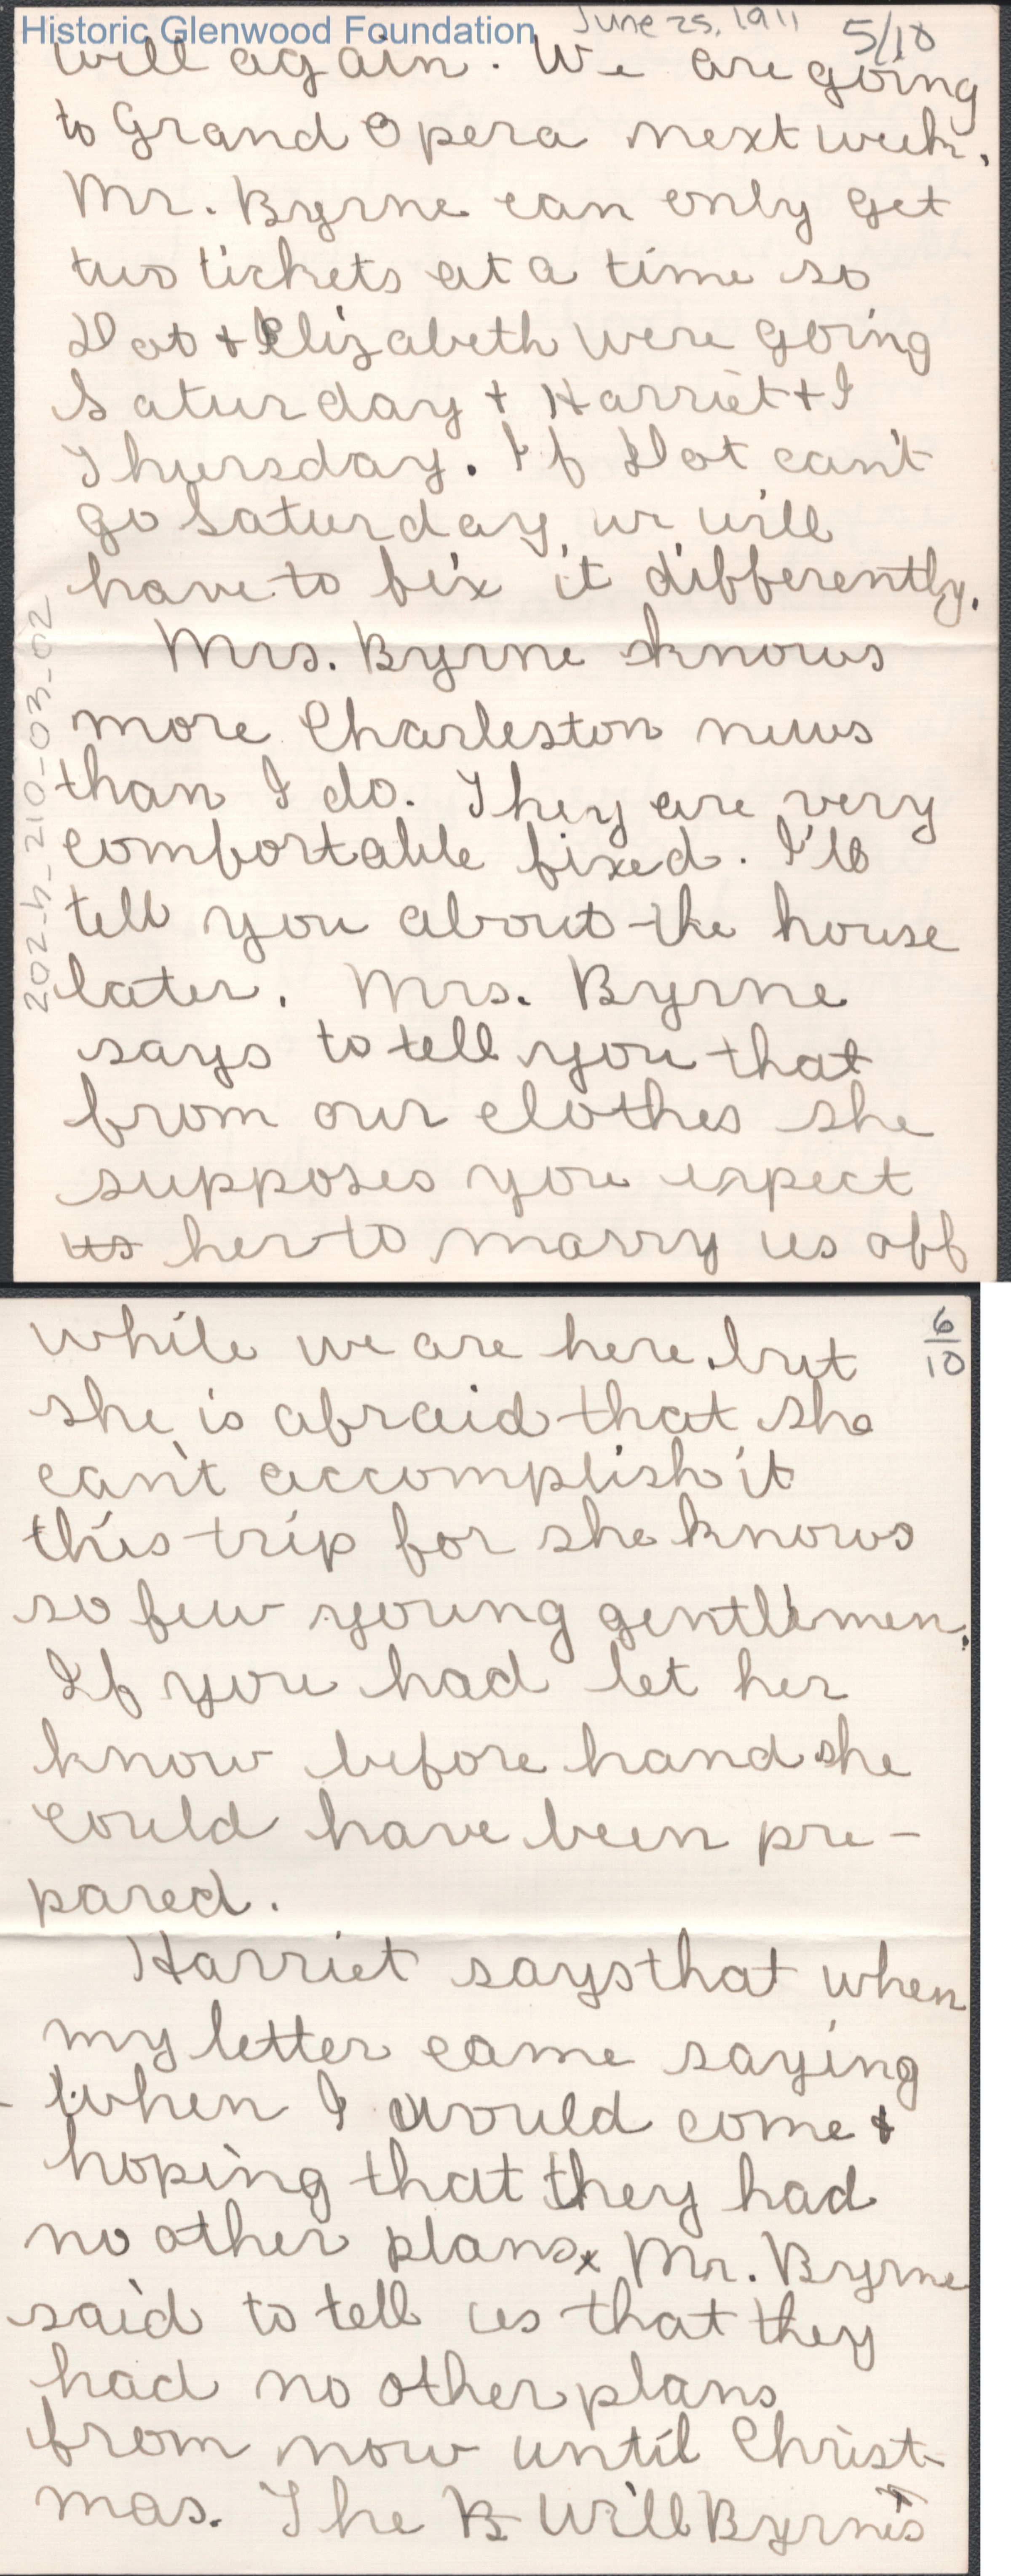 Historic Glenwood Foundation
June 25, 1911
5/10
will again. We are going
to Grand Opera next week.
Mr. Byrne can only get
two tickets at a time so
Dot + Elizabeth were going
Saturday + Harriet + I
Thursday. If Dot can't
go Saturday, we will
have to fix it differently.
Mrs. Byrne knows
more Charleston news
than I do. They are very
comfortable fixed. I'll
tell you about the house
later. Mrs. Byrne
says to tell you that
from our clothes she
supposes you expect
us her to marry us off
202_h_210_03_02
6/10
while we are here, but
she is afraid that she
can't accomplish it
this trip for she knows
so few young gentlemen.
If you had let her
know before hand she
could have been pre-
pared.
Harriet says that when
my letter came saying
when I would come +
hoping that they had
no other plans, Mr. Byrne
said to tell us that they
had no other plans
from now until Christ-
mas. The B Will Byrnes